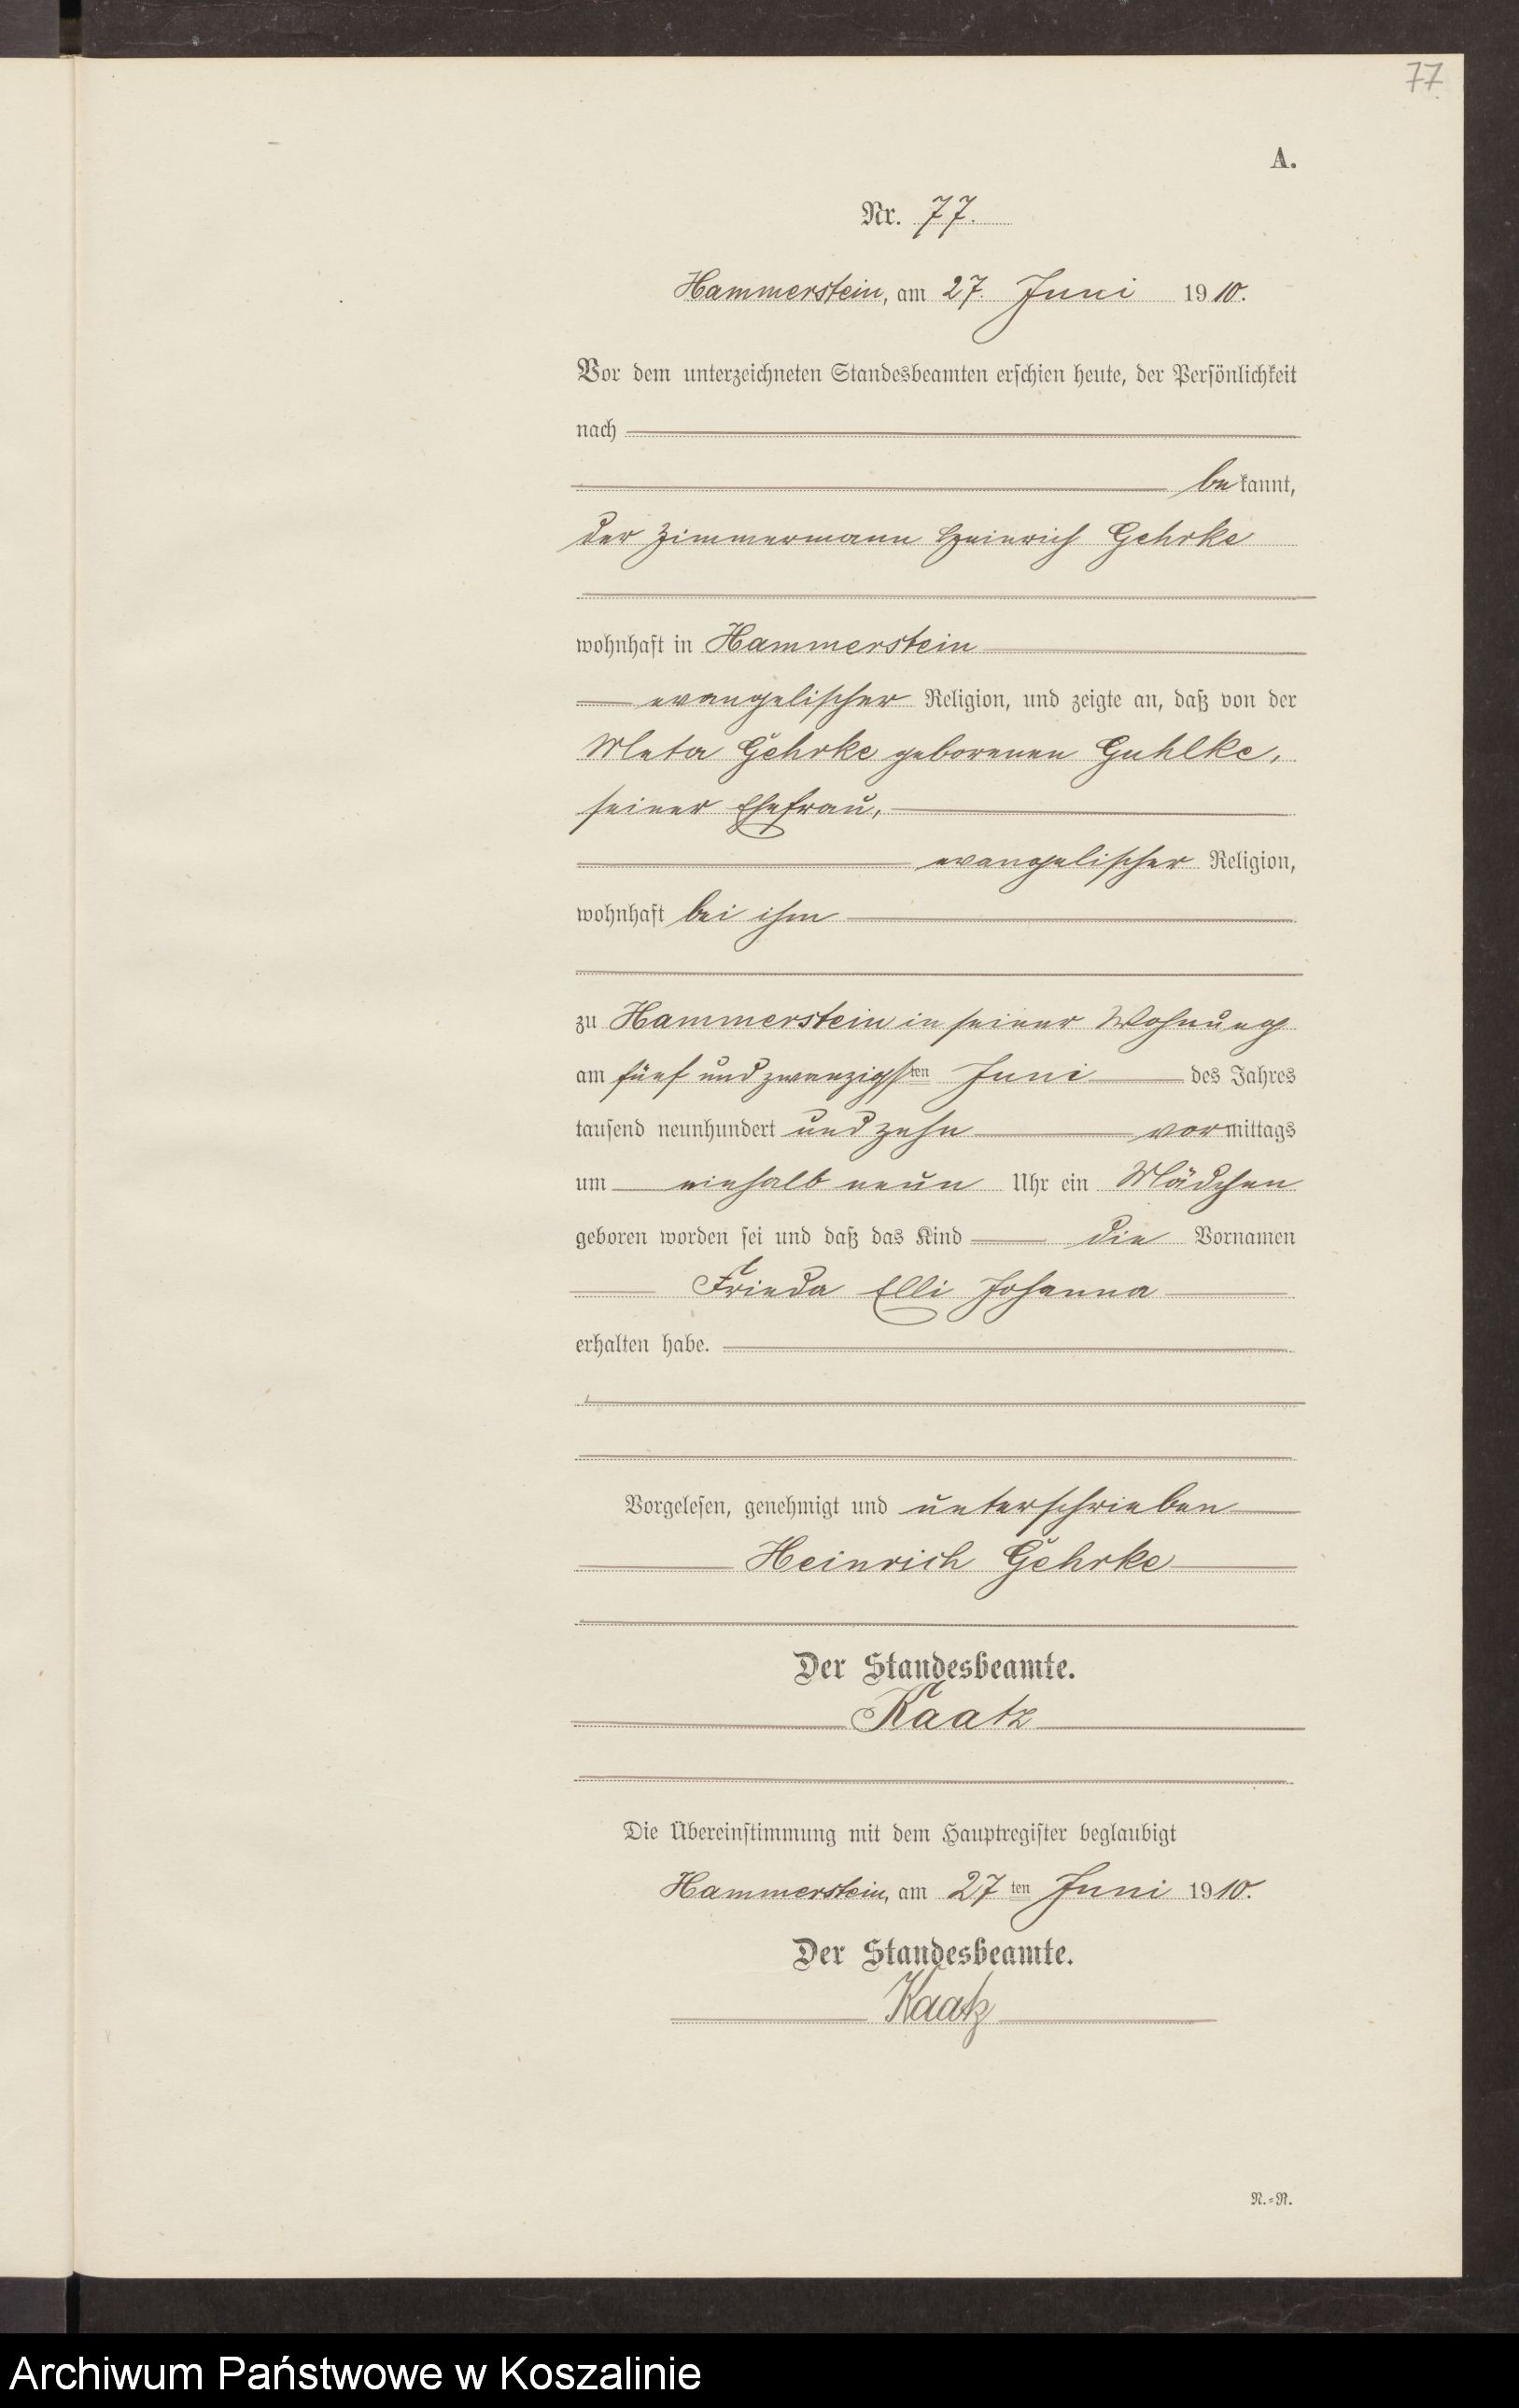 77
A.
Nr. 77.
Hammerstein, am 27. Juni 1910.
Vor dem unterzeichneten Standesbeamten erschien heute, der Persönlichkeit
nach
bekannt,
der Zimmermann Heinrich Gehrke
wohnhaft in Hammerstein
evangelischer Religion, und zeigte an, daß von der
Meta Gehrke geborenen Guhlke,
seiner Ehefrau,
evangelischer Religion,
wohnhaft bei ihm
zu Hammerstein in seiner Wohnung
am fünf und zwanzigsten Juni des Jahres
tausend neunhundert und zehn vormittags
um einhalb neun Uhr ein Mädchen
geboren worden sei und daß das Kind die Vornamen
Frieda Elli Johanna
erhalten habe.
Vorgelesen, genehmigt und unterschrieben
Heinrich Gehrke
Der Standesbeamte.
Kaatz
Die Übereinstimmung mit dem Hauptregister beglaubigt
Hammerstein, am 27ten Juni 1910.
Der Standesbeamte.
Kaatz
N.=R.
Archiwum Państwowe w Koszalinie